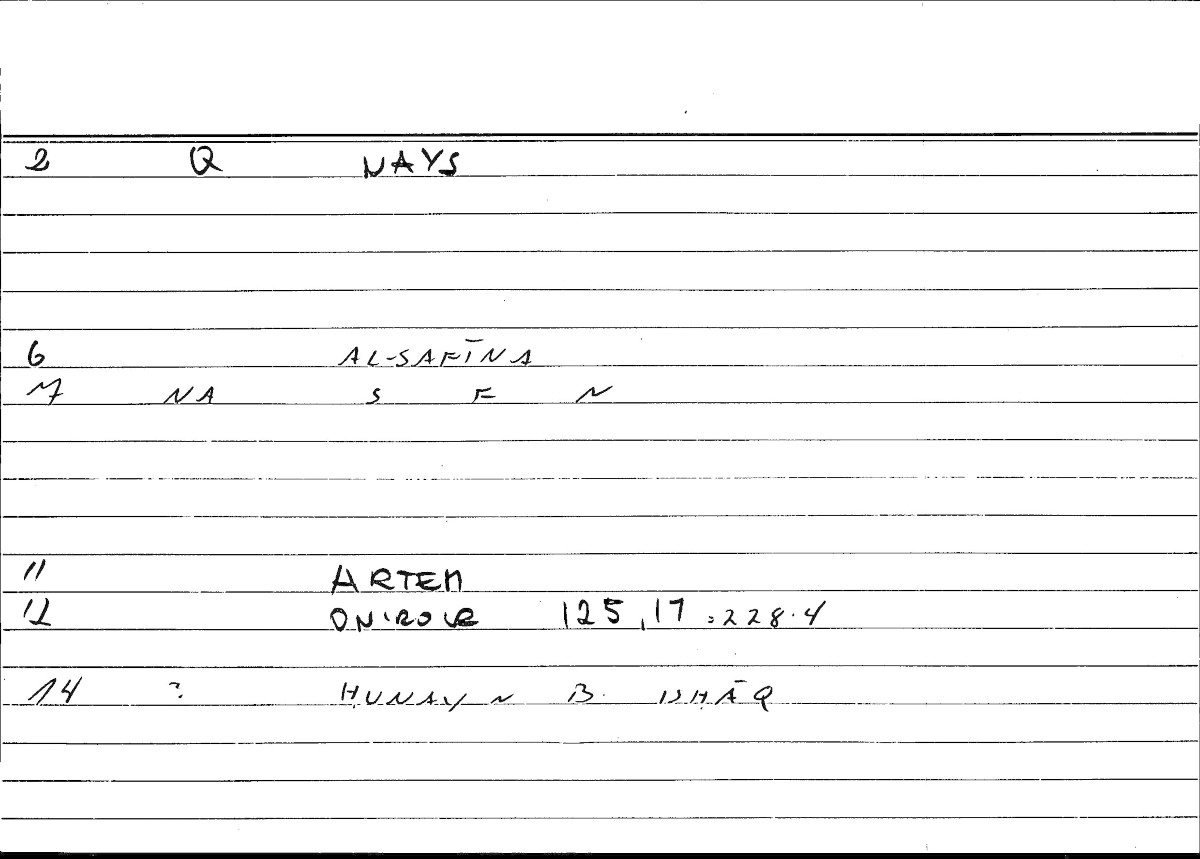 2 Q NAYS
6 AL-SAFĪNA
7 NA S F N
11 ARTEM
12 ONIROCR 125,17 = 228.4
14 ? ḤUNAYN B. ISḤĀQ